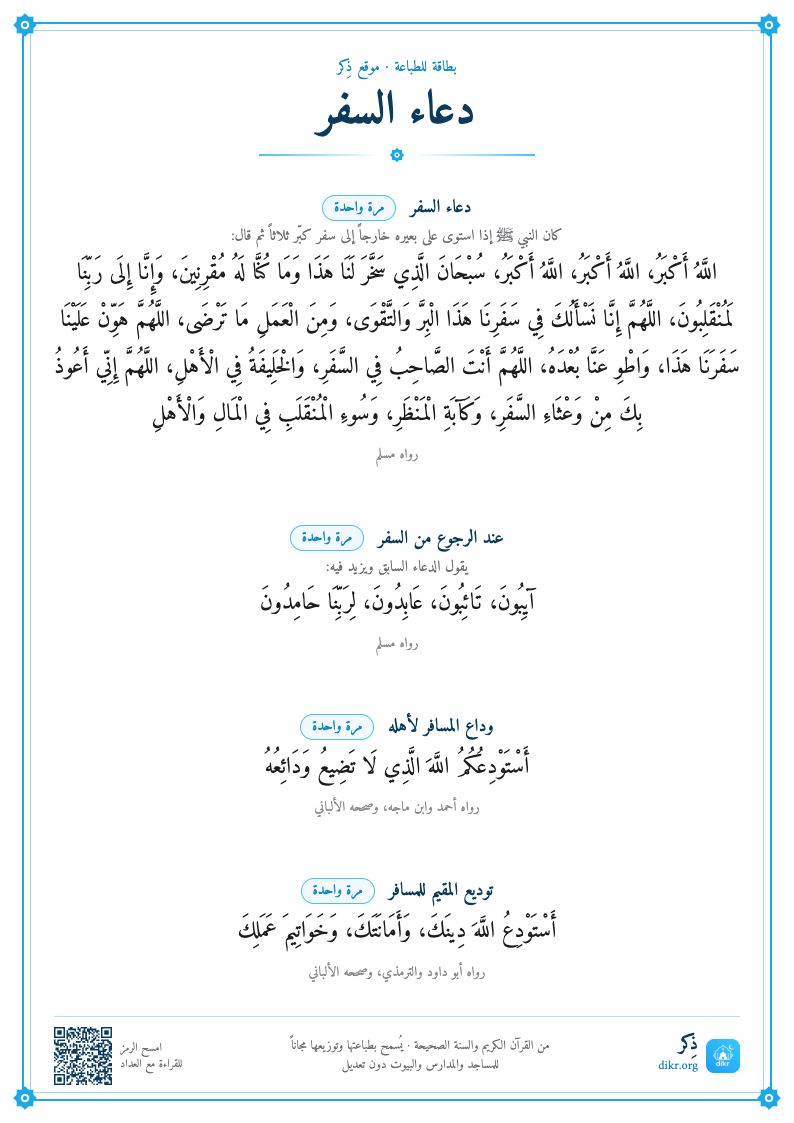 بطاقة للطباعة · موقع ذِكر
دعاء السفر
دعاء السفر مرة واحدة
كان النبي ﷺ إذا استوى على بعيره خارجاً إلى سفر كبّر ثلاثاً ثم قال:
اللَّهُ أَكْبَرُ، اللَّهُ أَكْبَرُ، اللَّهُ أَكْبَرُ، سُبْحَانَ الَّذِي سَخَّرَ لَنَا هَذَا وَمَا كُنَّا لَهُ مُقْرِنِينَ، وَإِنَّا إِلَى رَبِّنَا
لَمُنْقَلِبُونَ، اللَّهُمَّ إِنَّا نَسْأَلُكَ فِي سَفَرِنَا هَذَا الْبِرَّ وَالتَّقْوَى، وَمِنَ الْعَمَلِ مَا تَرْضَى، اللَّهُمَّ هَوِّنْ عَلَيْنَا
سَفَرَنَا هَذَا، وَاطْوِ عَنَّا بُعْدَهُ، اللَّهُمَّ أَنْتَ الصَّاحِبُ فِي السَّفَرِ، وَالْخَلِيفَةُ فِي الْأَهْلِ، اللَّهُمَّ إِنِّي أَعُوذُ
بِكَ مِنْ وَعْثَاءِ السَّفَرِ، وَكَآبَةِ الْمَنْظَرِ، وَسُوءِ الْمُنْقَلَبِ فِي الْمَالِ وَالْأَهْلِ
رواه مسلم
عند الرجوع من السفر مرة واحدة
يقول الدعاء السابق ويزيد فيه:
آيِبُونَ، تَائِبُونَ، عَابِدُونَ، لِرَبِّنَا حَامِدُونَ
رواه مسلم
وداع المسافر لأهله مرة واحدة
أَسْتَوْدِعُكُمُ اللَّهَ الَّذِي لَا تَضِيعُ وَدَائِعُهُ
رواه أحمد وابن ماجه، وصححه الألباني
توديع المقيم للمسافر مرة واحدة
أَسْتَوْدِعُ اللَّهَ دِينَكَ، وَأَمَانَتَكَ، وَخَوَاتِيمَ عَمَلِكَ
رواه أبو داود والترمذي، وصححه الألباني
dikr
ذِكر
dikr.org
من القرآن الكريم والسنة الصحيحة · يُسمح بطباعتها وتوزيعها مجاناً
للمساجد والمدارس والبيوت دون تعديل
امسح الرمز
للقراءة مع العداد